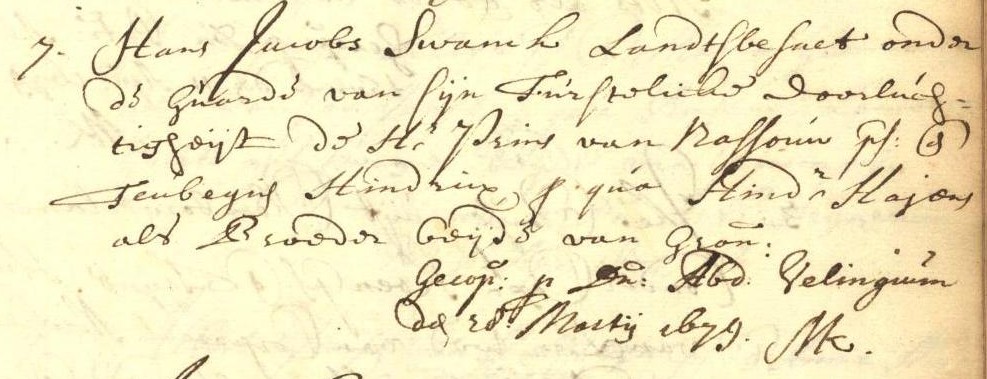 7. Hans Jacobs Swanck Landtsbesaet onder
de Guarde van sijn Furstelicke Doorluch=
tigheijt de Hr Prins van Nassouw ps: @
Teubegin Hindrix, p. qua Hindr. Hajens
als Broeder beijde van Gron:
Gecop: p Dn: Abd. Velingium
de 28t Martij 1679. MK.